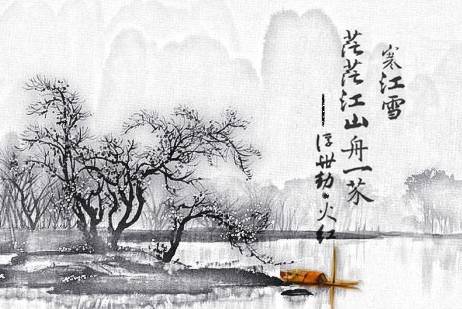 寒江雪
茫茫江山舟一芥
——浮世劫•火红